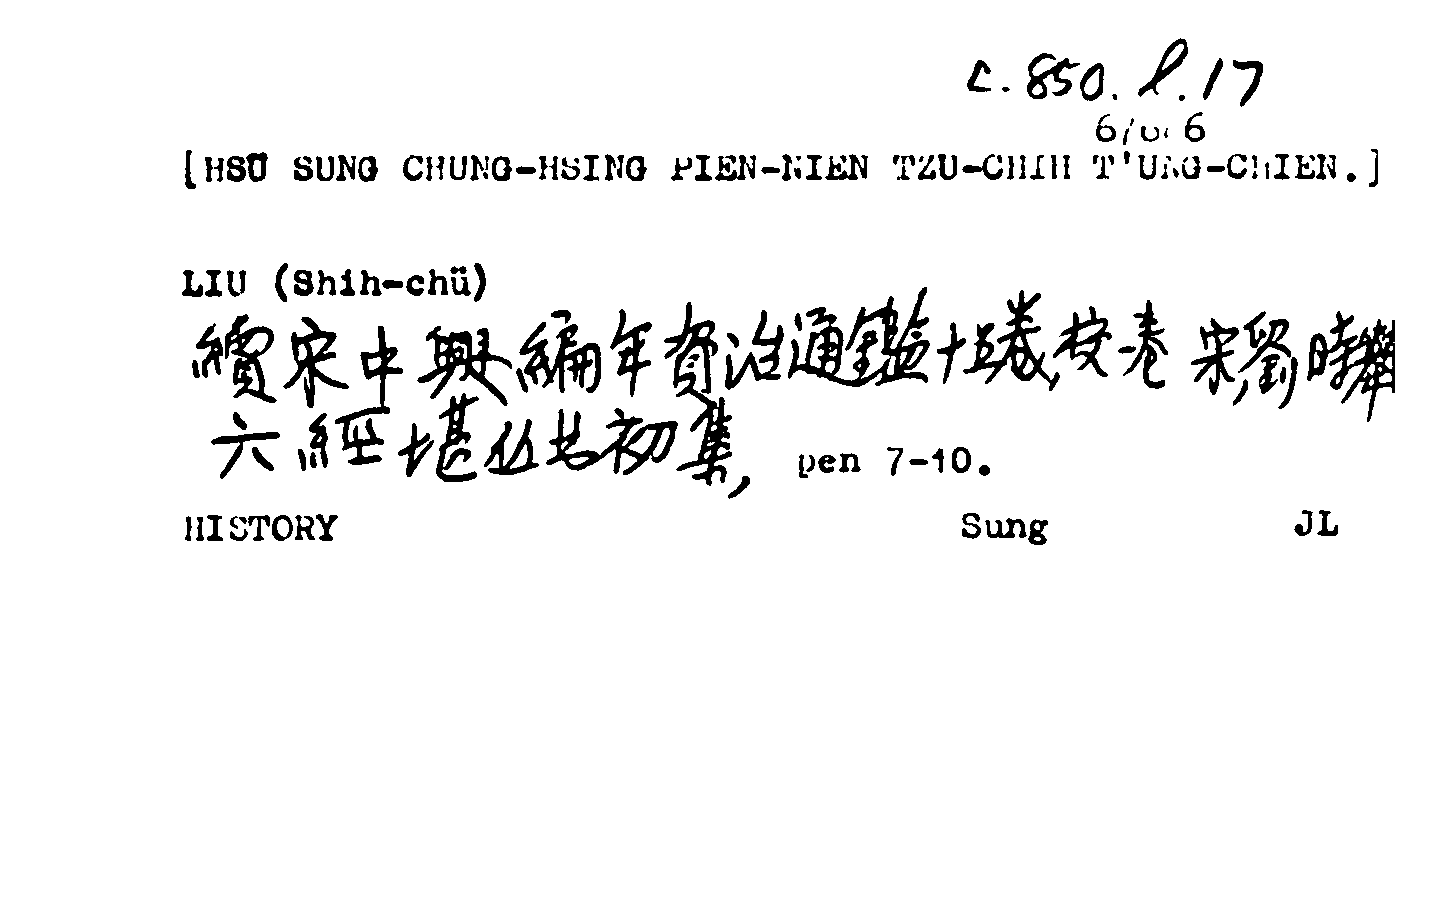 c.850.l.17
[HSÜ SUNG CHUNG-HSING PIEN-NIEN TZU-CHIH T'UNG-CHIEN.]
LIU (Shih-chü)
續宋中興編年資治通鑑十五卷,校一卷 宋,劉時舉
六經堪丛书初集, pen 7-10.
HISTORY Sung JL